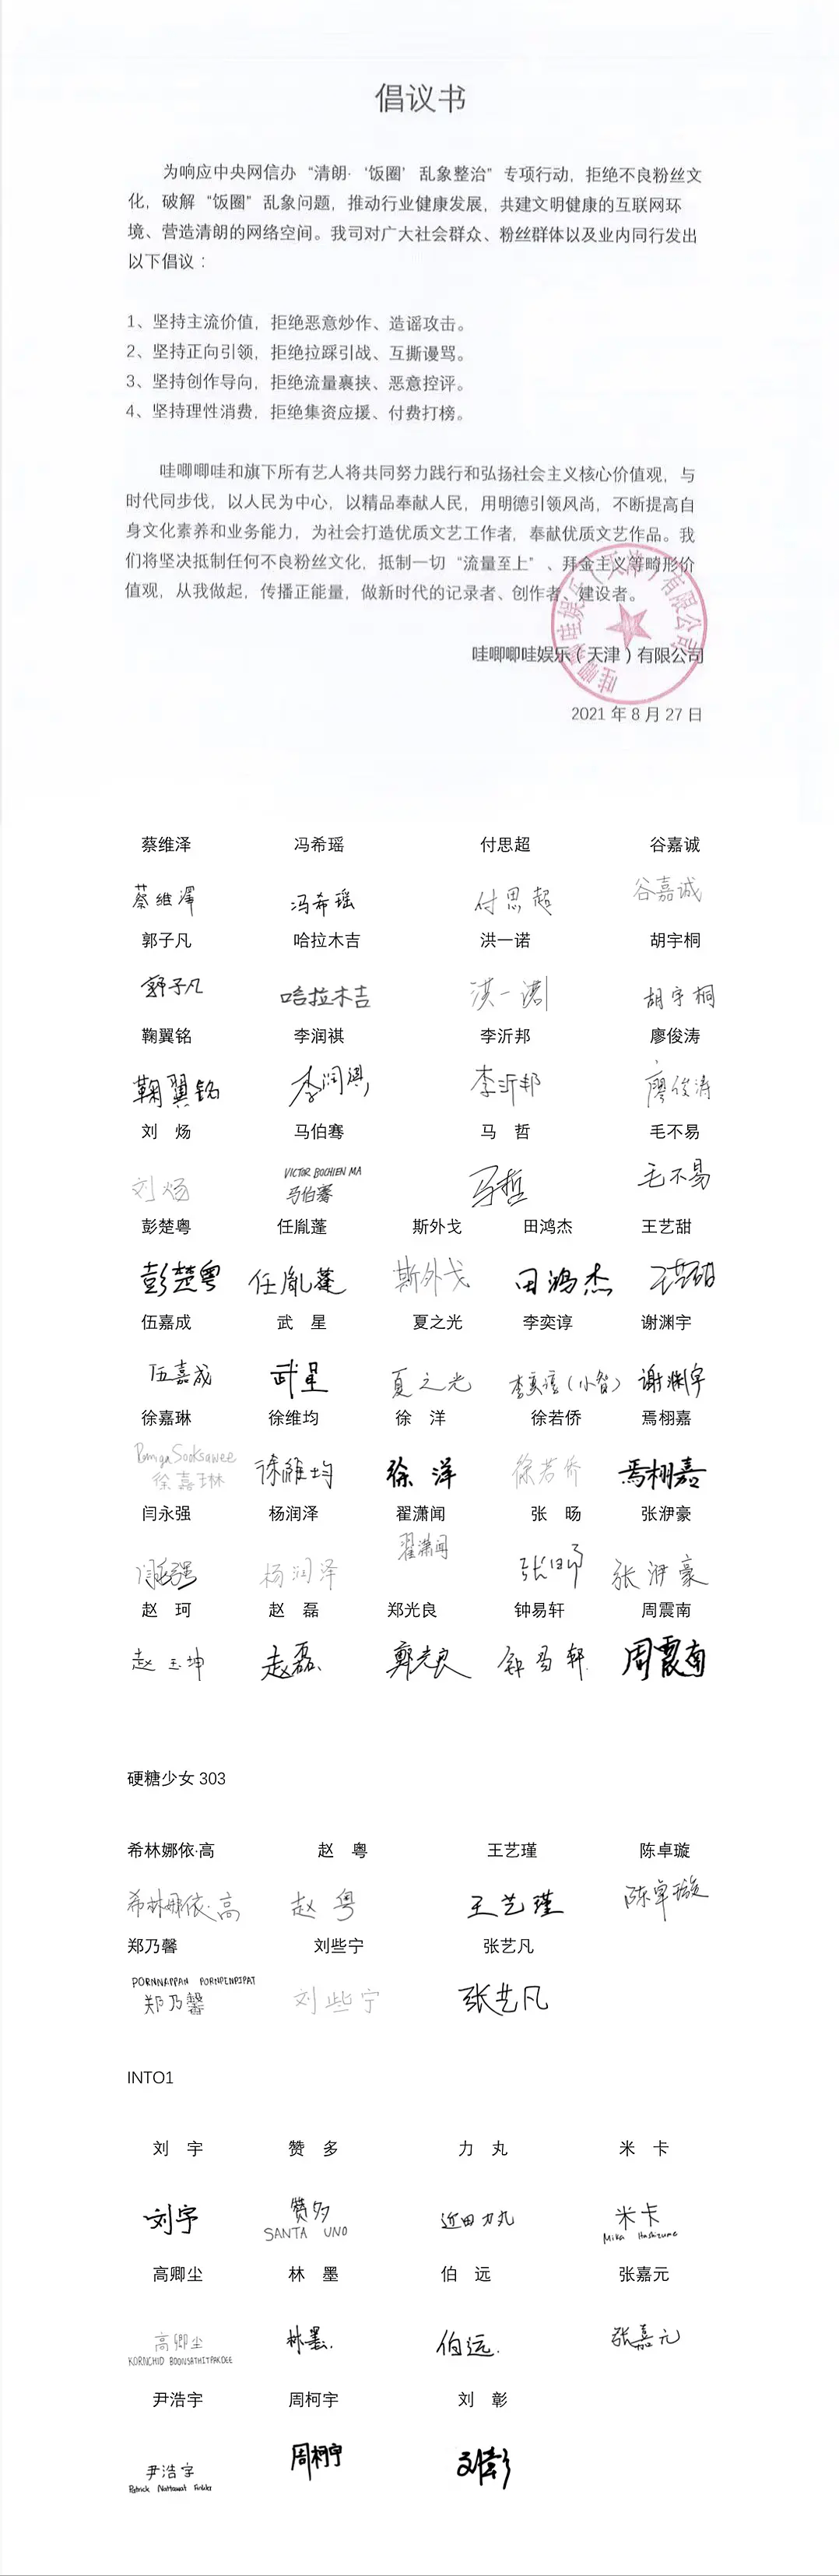 倡议书
为响应中央网信办“清朗·‘饭圈’乱象整治”专项行动，拒绝不良粉丝文
化，破解“饭圈”乱象问题，推动行业健康发展，共建文明健康的互联网环
境、营造清朗的网络空间。我司对广大社会群众、粉丝群体以及业内同行发出
以下倡议：
1、坚持主流价值，拒绝恶意炒作、造谣攻击。
2、坚持正向引领，拒绝拉踩引战、互撕谩骂。
3、坚持创作导向，拒绝流量裹挟、恶意控评。
4、坚持理性消费，拒绝集资应援、付费打榜。
哇唧唧哇和旗下所有艺人将共同努力践行和弘扬社会主义核心价值观，与
时代同步伐，以人民为中心，以精品奉献人民，用明德引领风尚，不断提高自
身文化素养和业务能力，为社会打造优质文艺工作者，奉献优质文艺作品。我
们将坚决抵制任何不良粉丝文化，抵制一切“流量至上”、拜金主义等畸形价
值观，从我做起，传播正能量，做新时代的记录者、创作者、建设者。
哇唧唧哇娱乐（天津）有限公司
哇唧唧哇娱乐（天津）有限公司
2021 年 8 月 27 日
蔡维泽 冯希瑶 付思超 谷嘉诚
蔡维澤 冯希瑶 付思超 谷嘉诚
郭子凡 哈拉木吉 洪一诺 胡宇桐
郭子凡 哈拉木吉 洪一诺 胡宇桐
鞠翼铭 李润祺 李沂邦 廖俊涛
鞠翼铭 李润祺 李沂邦 廖俊涛
刘 炀 马伯骞 马 哲 毛不易
VICTOR BOCHIEN MA
刘炀 马伯骞 马哲 毛不易
彭楚粤 任胤蓬 斯外戈 田鸿杰 王艺甜
彭楚粤 任胤蓬 斯外戈 田鸿杰
伍嘉成 武 星 夏之光 李奕谆 谢渊宇
伍嘉成 武星 夏之光 李奕谆(小智) 谢渊宇
徐嘉琳 徐维均 徐 洋 徐若侨 焉栩嘉
徐嘉琳 徐維均 徐洋 徐若侨 焉栩嘉
闫永强 杨润泽 翟潇闻 张 旸 张洢豪
闫永强 杨润泽 翟潇闻 张旸 张洢豪
赵 珂 赵 磊 郑光良 钟易轩 周震南
赵 赵磊 鄭光良 钟易轩 周震南
硬糖少女 303
希林娜依·高 赵 粤 王艺瑾 陈卓璇
希林娜依·高 赵粤 王艺瑾 陈卓璇
郑乃馨 刘些宁 张艺凡
郑乃馨 刘些宁 张艺凡
INTO1
刘 宇 赞 多 力 丸 米 卡
刘宇 赞多 近田力丸 米卡
SANTA UNO Mika Hashizume
高卿尘 林 墨 伯 远 张嘉元
高卿尘 林墨. 伯远. 张嘉元
KORNCHID BOONSATHITPAKDEE
尹浩宇 周柯宇 刘 彰
尹浩宇 周柯宇 刘彰
Patrick Nattawat Finkler